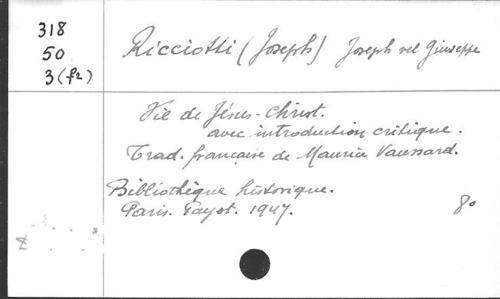 318
50
3 (fr)
Ricciotti (Joseph) Joseph vel Giuseppe
Vie de Jésus-Christ.
avec introduction critique.
Trad. française de Maurice Vaussard.
Bibliothèque historique.
Paris. Payot. 1947. 8°